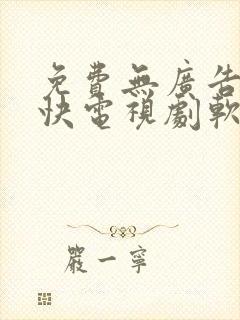 免費無廣告
快電視劇軟
嚴一寧